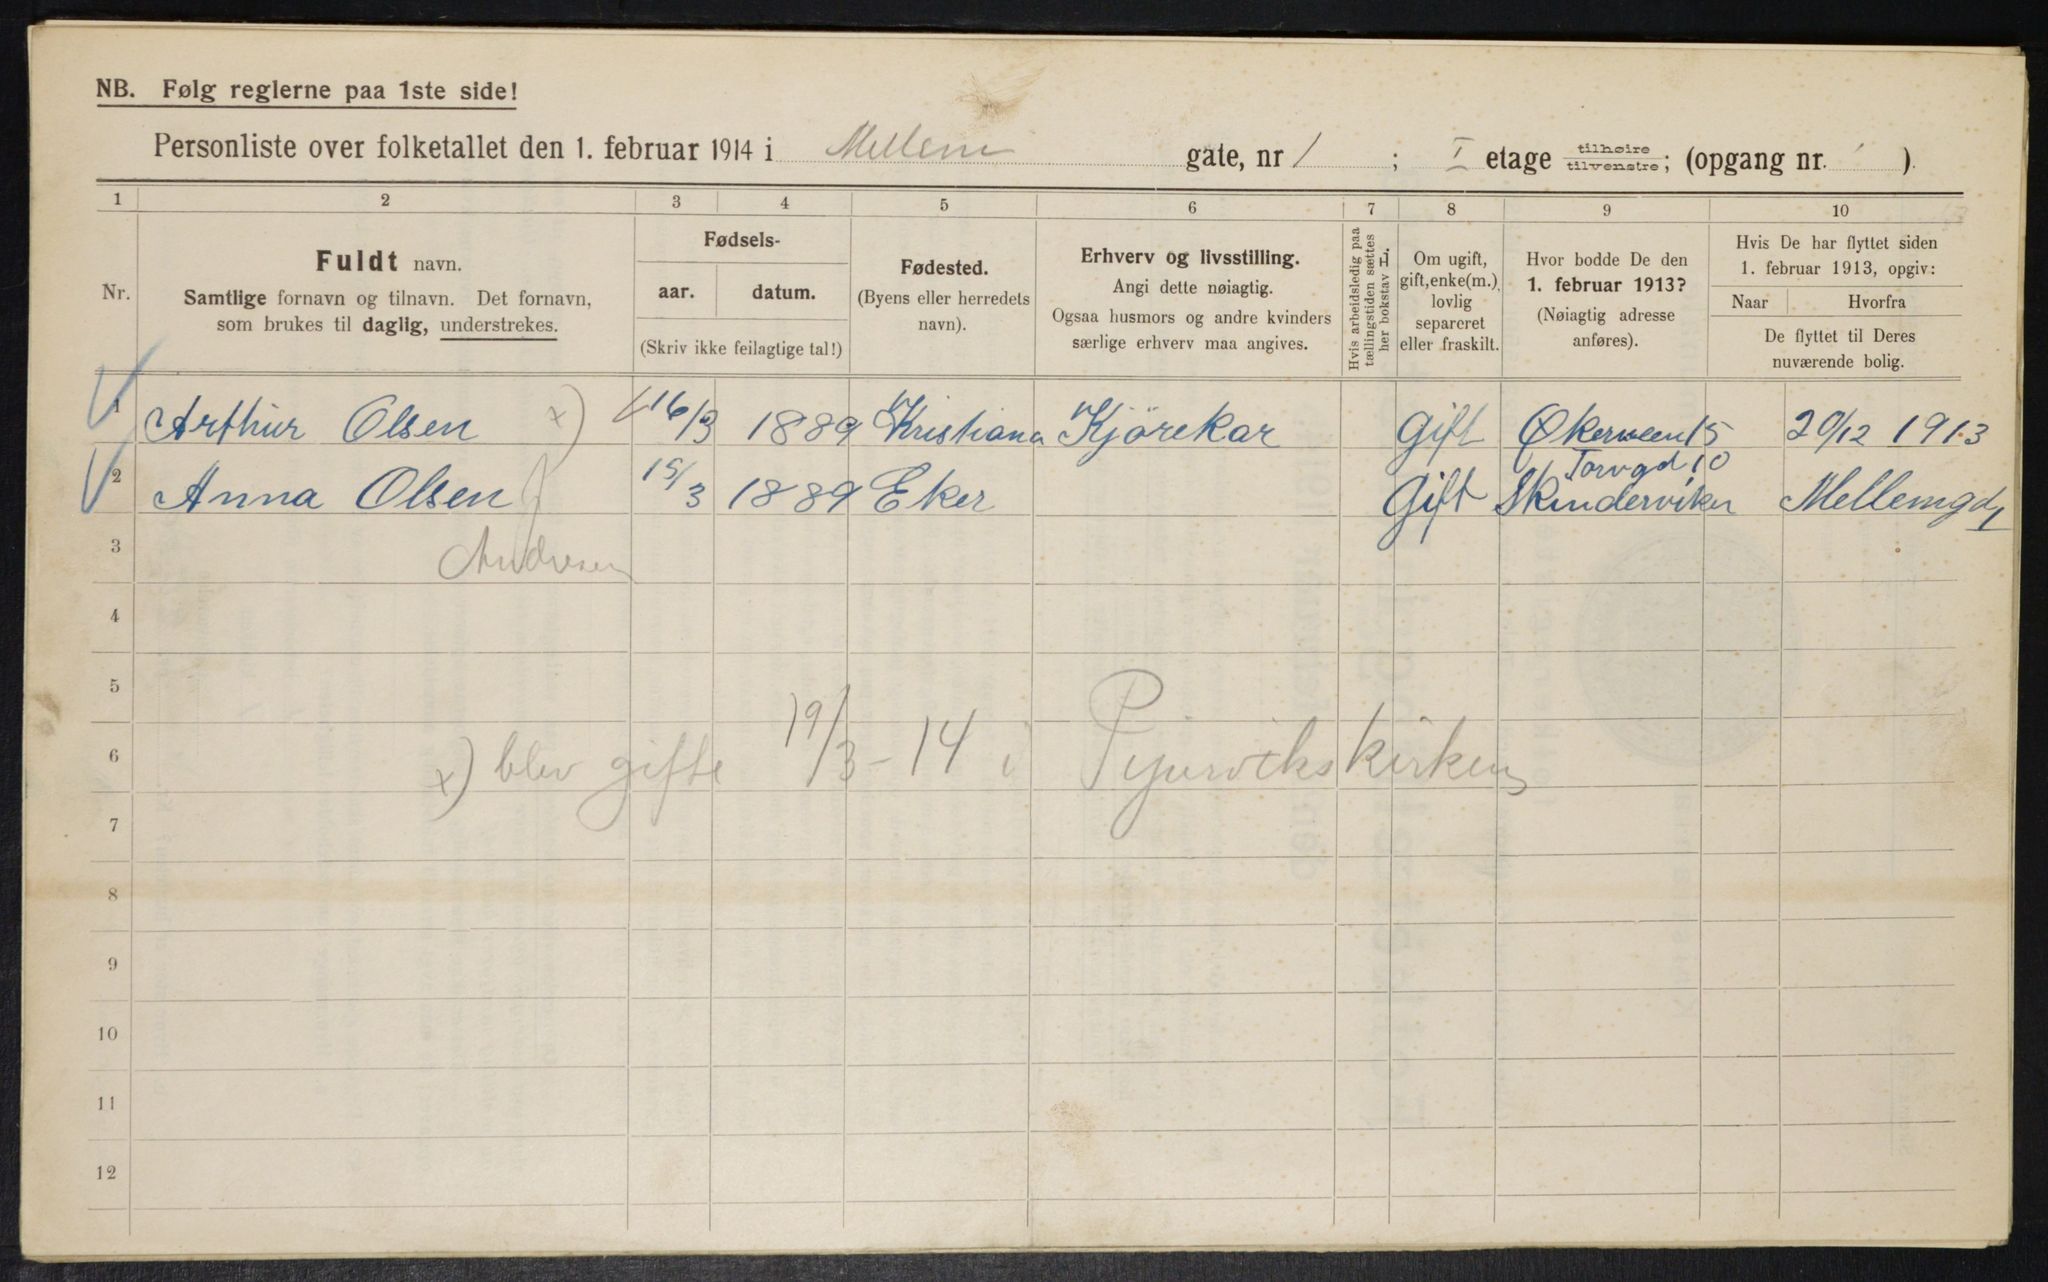 NB. Følg reglerne paa 1ste side!
Personliste over folketallet den 1. februar 1914 i Mellem gate, nr 1 ; I etage tilhøire tilvenstre; (opgang nr. ).
1 2 3 4 5 6 7 8 9 10
Nr.
Fuldt navn.
Samtlige fornavn og tilnavn. Det fornavn,
som brukes til daglig, understrekes.
Fødsels-
aar. datum.
(Skriv ikke feilagtige tal!)
Fødested.
(Byens eller herredets
navn).
Erhverv og livsstilling.
Angi dette nøiagtig.
Ogsaa husmors og andre kvinders
særlige erhverv maa angives.
Hvis arbeidsledig paa
tællingstiden sættes
her bokstav L.
Om ugift,
gift, enke(m.),
lovlig
separeret
eller fraskilt.
Hvor bodde De den
1. februar 1913?
(Nøiagtig adresse
anføres).
Hvis De har flyttet siden
1. februar 1913, opgiv:
Naar Hvorfra
De flyttet til Deres
nuværende bolig.
1 Arthur Olsen x) 16/3 1889 Kristiana Kjörekar Gift Økerveen 15 20/12 1913
Torvgd 10
2 Anna Olsen 15/3 1889 Eker Gift Skinderviken Mellemgd 1
3 Andresen
4
5
6 x) blev gifte 19/3-14 i Pipervikskirken
7
8
9
10
11
12